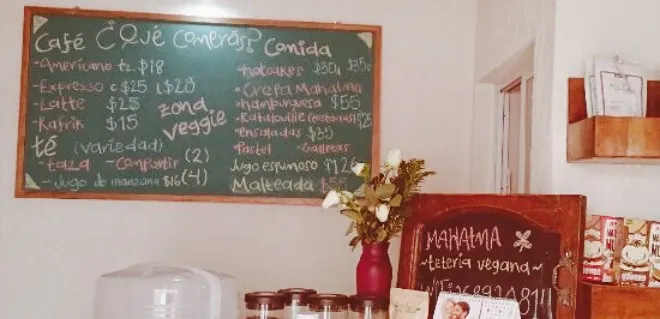 ¿Qué Comerás?
Café
Americano tz. $18
Expresso c $25 L $28
Latte $25
Kafrik $15
té (variedad)
- taza - Compartir (2)
(4)
- Jugo de manzana $16
zona
veggie
Comida
hotcakes $30 4 $35
Crepa Mahatma
hamburguesa $55
Ratatoville
ensaladas $35
Pastel - Galletas
Jugo espumoso
Malteada
MAHATMA
~tetería vegana~